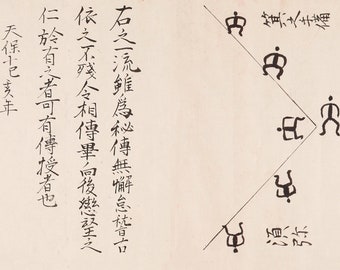 箕之手備
須弥
右之一流雖為秘傳無懈怠稽古
依之不残令相傳畢向後懇望之
仁於有之者可有傳授者也
天保十己亥年